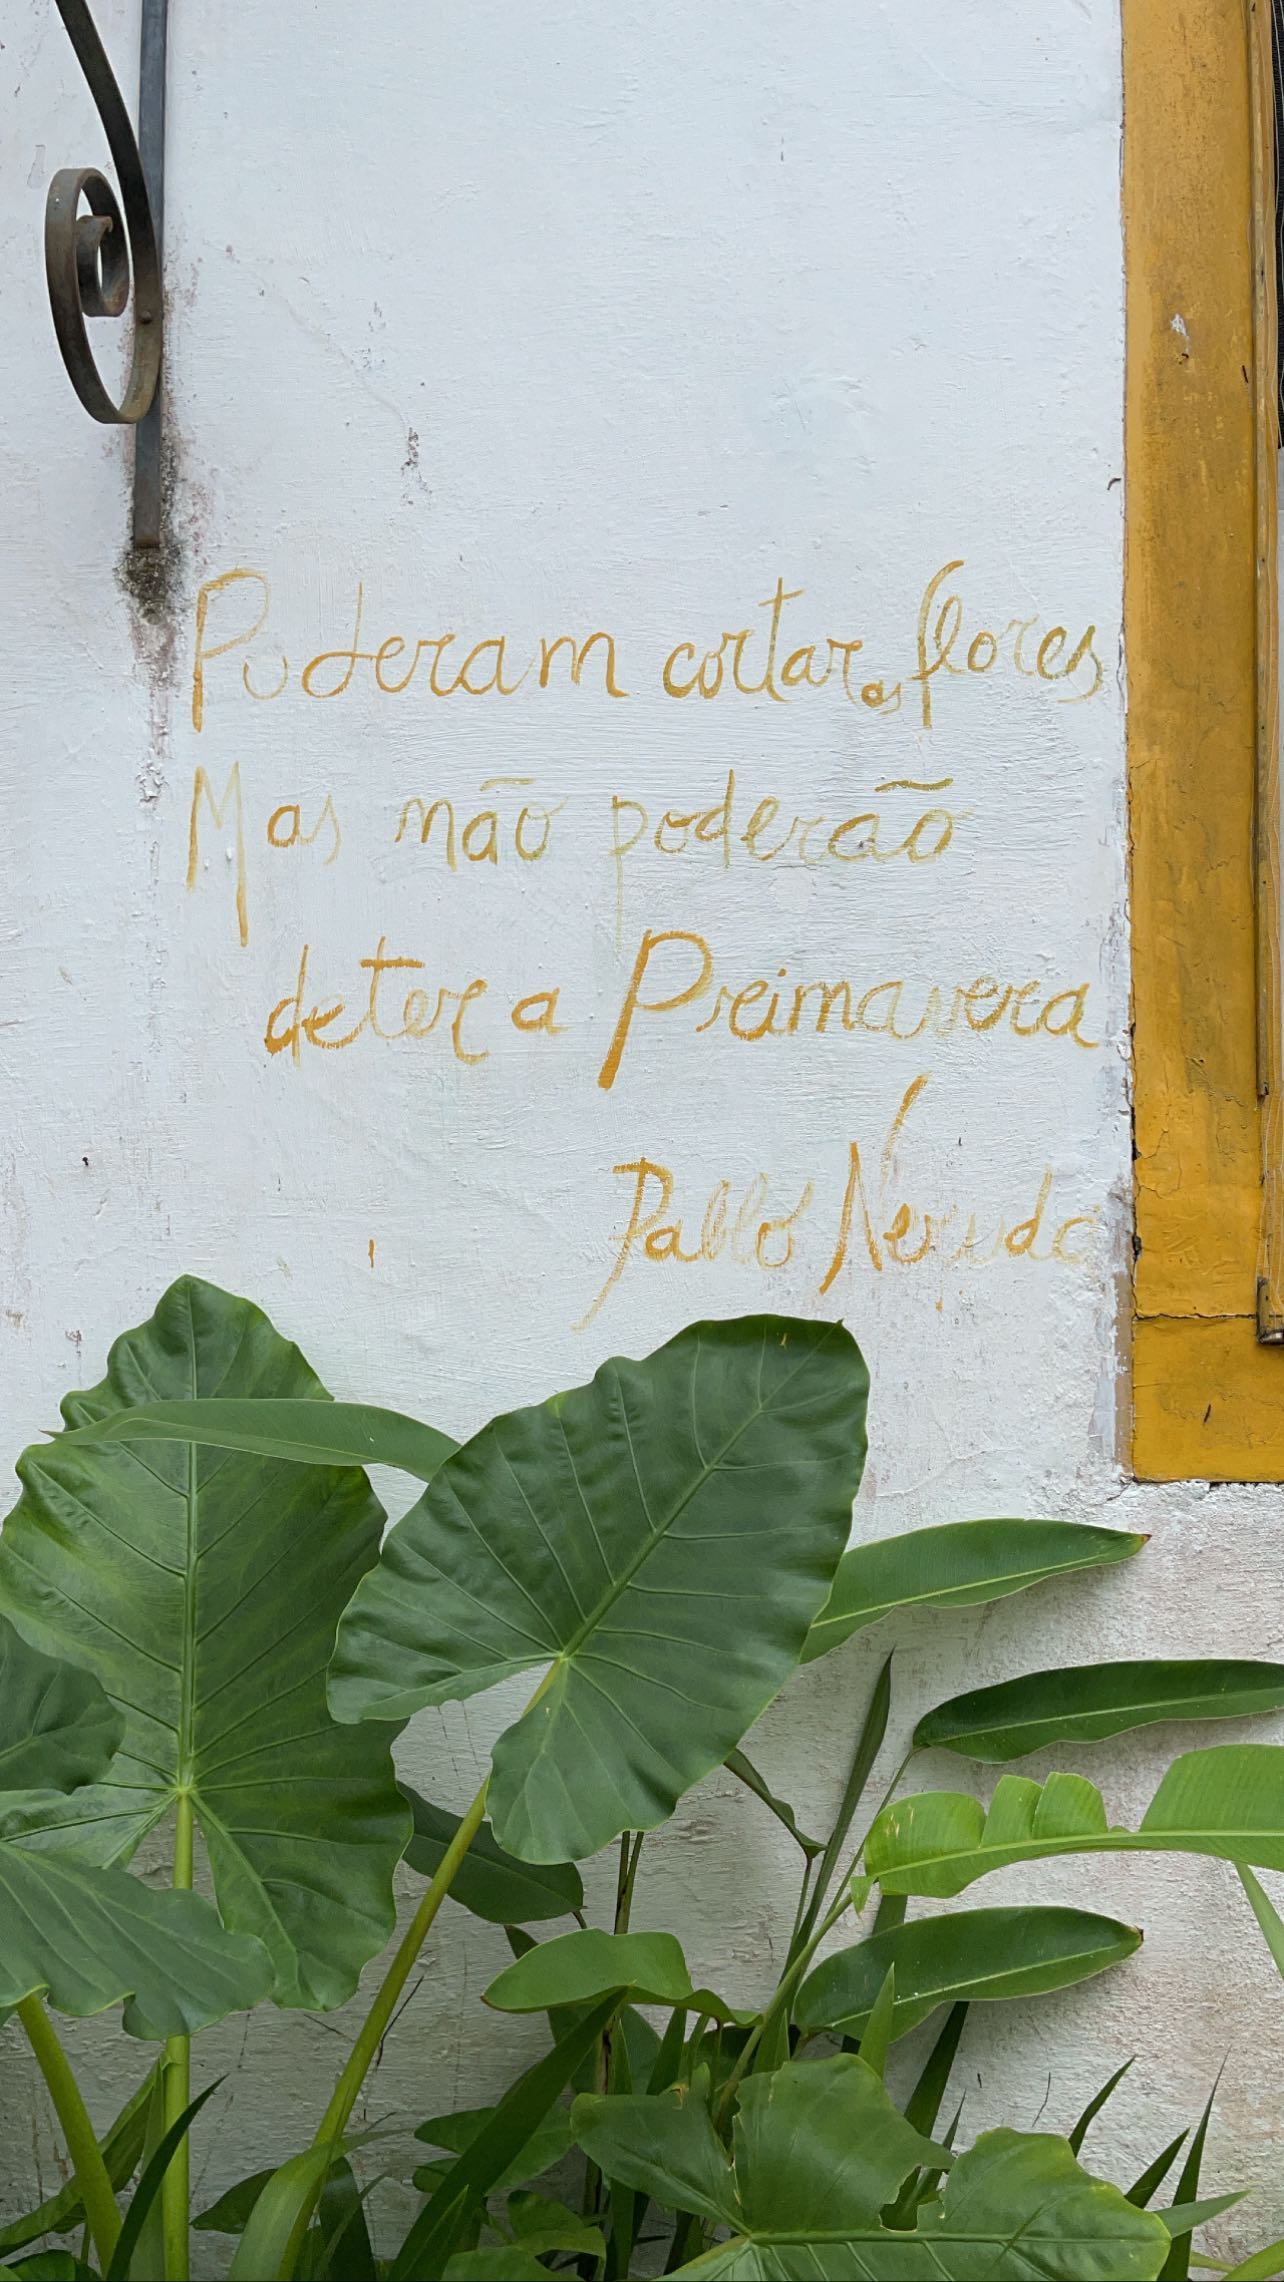 Poderam cortar as flores
Mas não poderão
deter a Primavera
Pablo Neruda